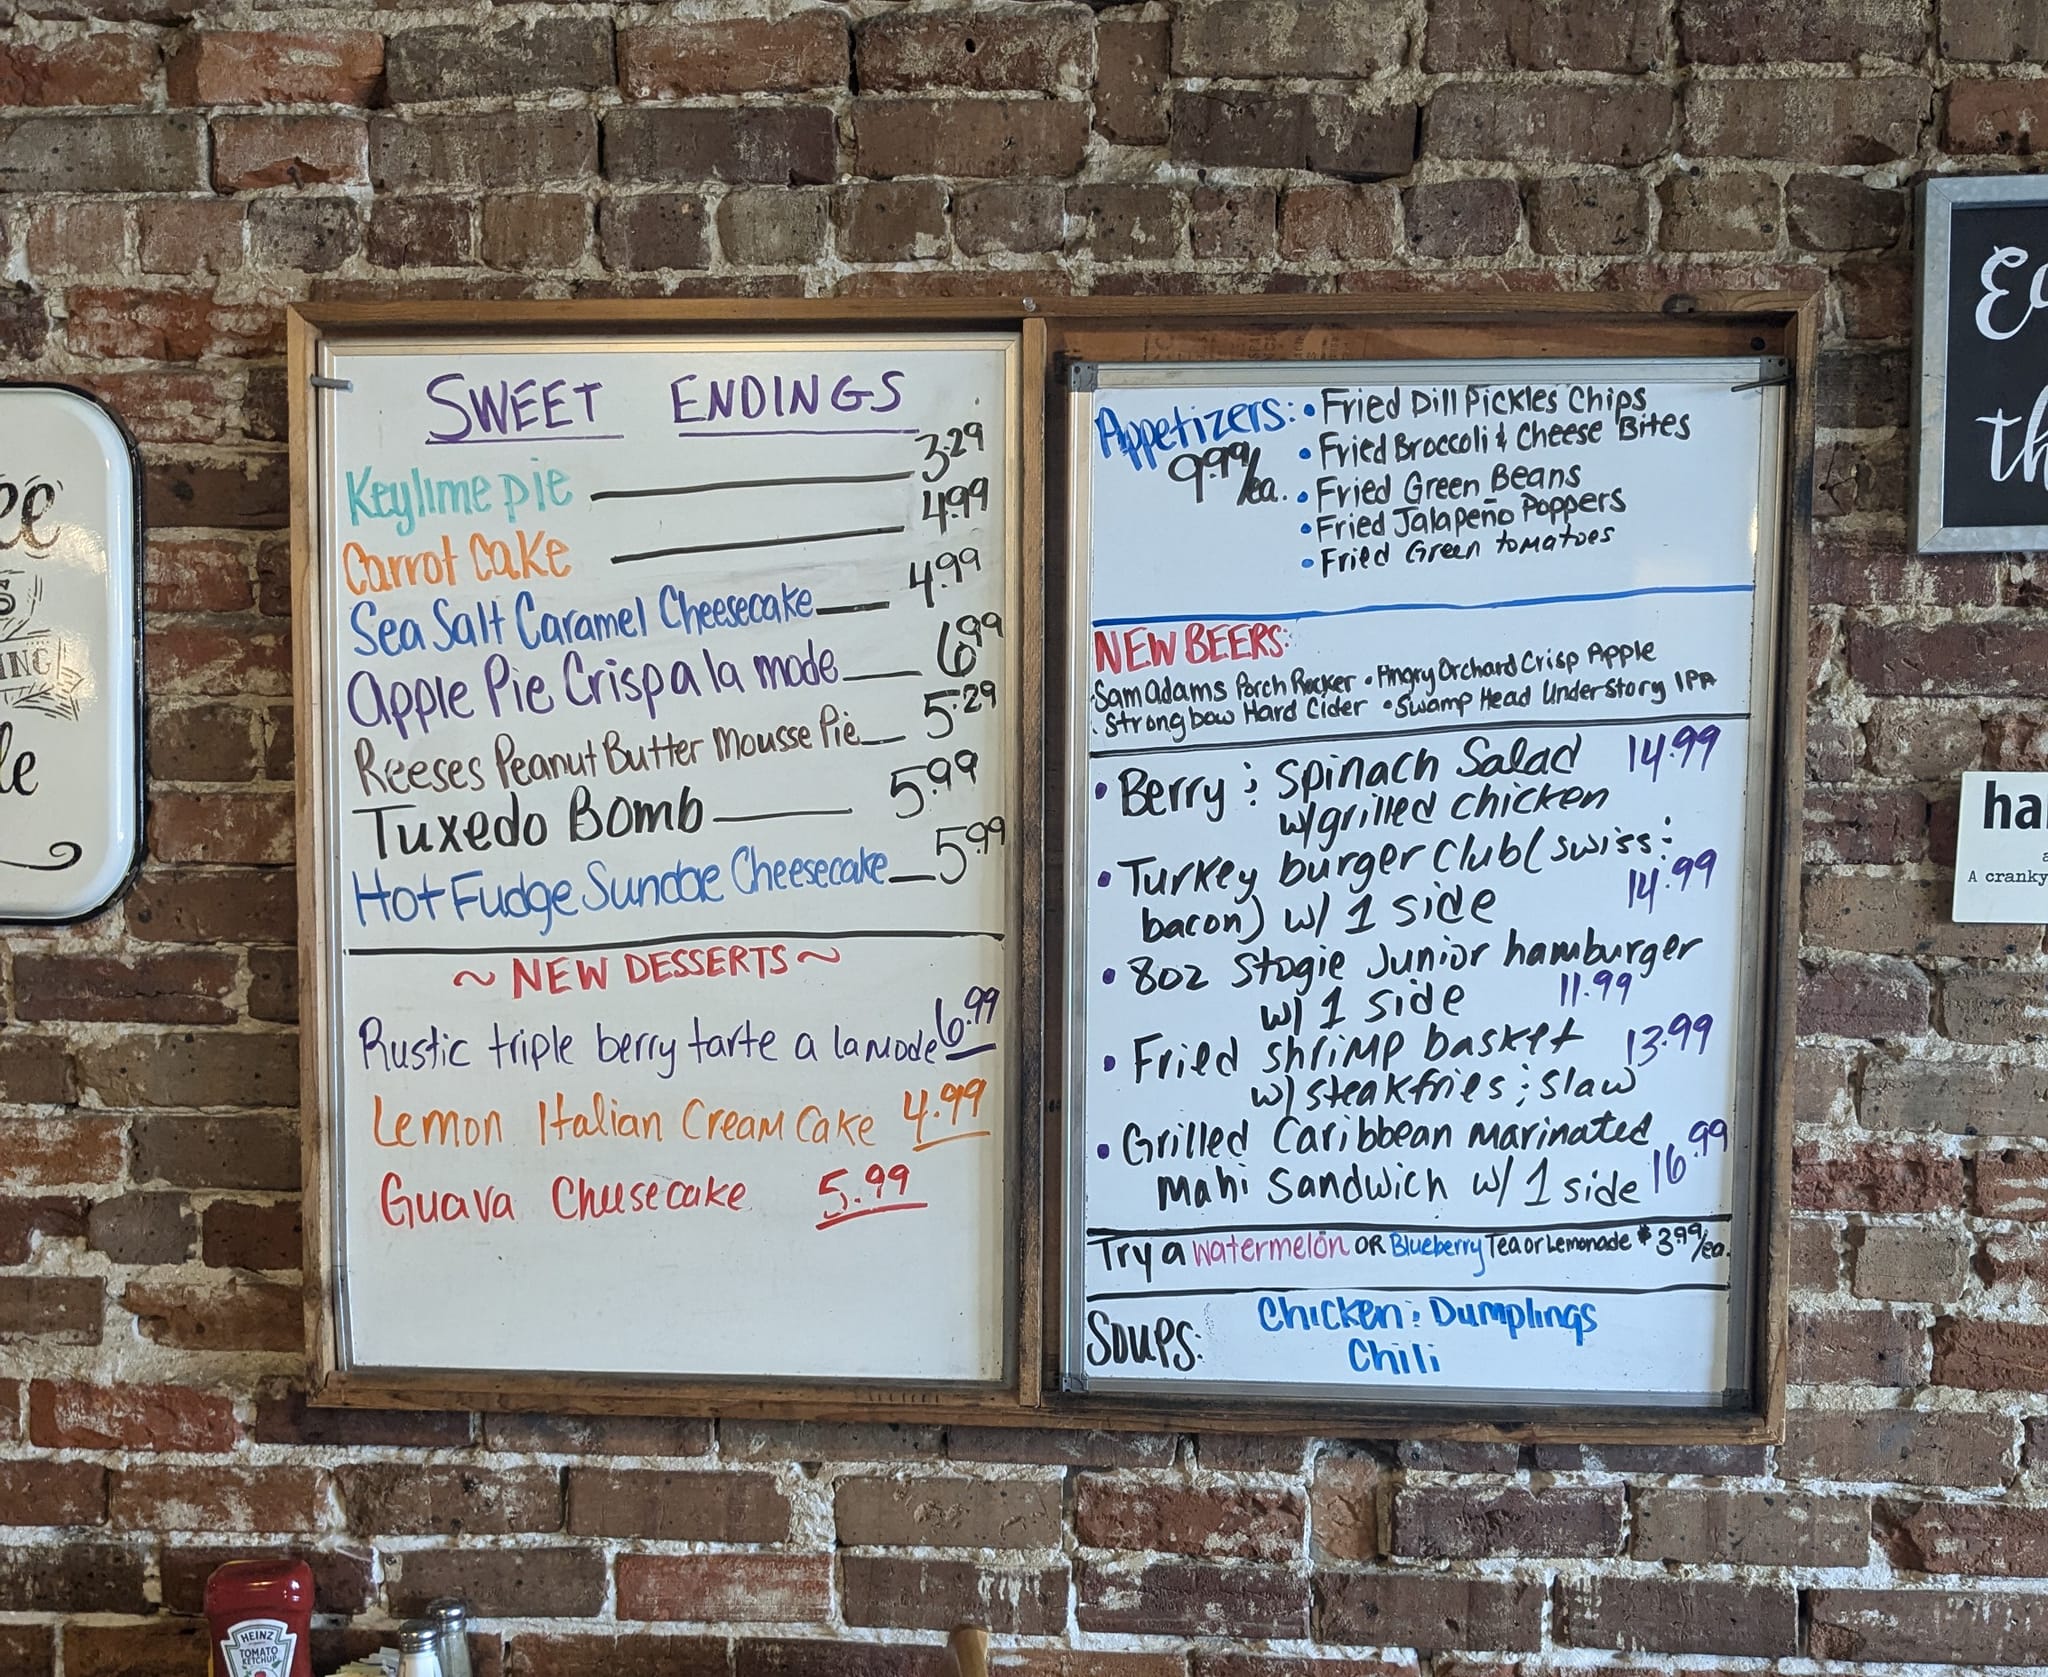 SWEET ENDINGS
Keylime pie 3.29
Carrot Cake 4.99
Sea Salt Caramel Cheesecake 4.99
Apple Pie Crisp a la mode 6.99
Reeses Peanut Butter Mousse Pie 5.29
Tuxedo Bomb 5.99
Hot Fudge Sundae Cheesecake 5.99
~ NEW DESSERTS ~
Rustic triple berry tarte a la mode 6.99
Lemon Italian Cream Cake 4.99
Guava Cheesecake 5.99
Appetizers: • Fried Dill Pickles Chips
9.99/ea. • Fried Broccoli & Cheese Bites
• Fried Green Beans
• Fried Jalapeño Poppers
• Fried Green tomatoes
NEW BEERS:
· Sam Adams Porch Rocker • Angry Orchard Crisp Apple
· Strongbow Hard Cider • Swamp Head Understory IPA
• Berry & Spinach Salad 14.99
w/grilled chicken
• Turkey burger club (swiss &
bacon) w/ 1 side 14.99
• 8oz Stogie Junior hamburger
w/ 1 side 11.99
• Fried shrimp basket 13.99
w/steakfries & slaw
• Grilled Caribbean marinated
Mahi Sandwich w/ 1 side 16.99
Try a Watermelon OR Blueberry Tea or Lemonade $3.99/ea.
Soups: Chicken & Dumplings
Chili
ING
A cranky
HEINZ
TOMATO
KETCHUP